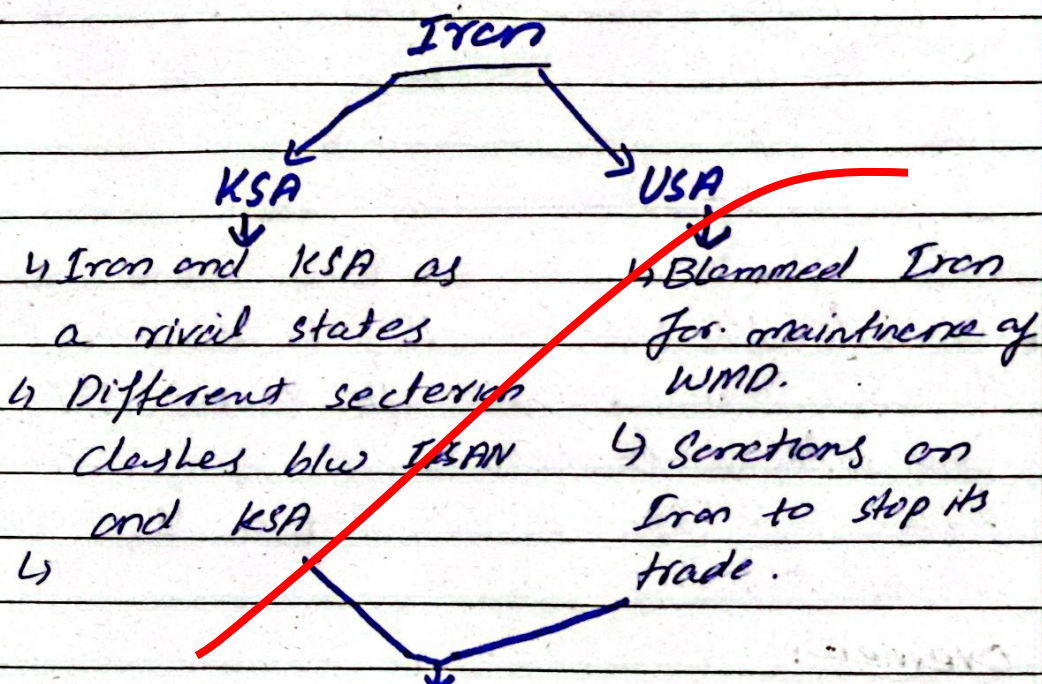 Iran
KSA
USA
↳ Iran and KSA as
a rival states
↳ Different secterian
clashes b/w
and KSA
↳
↳ Blammed Iran
for maintinence of
WMD.
↳ Sanctions on
Iran to stop its
trade.